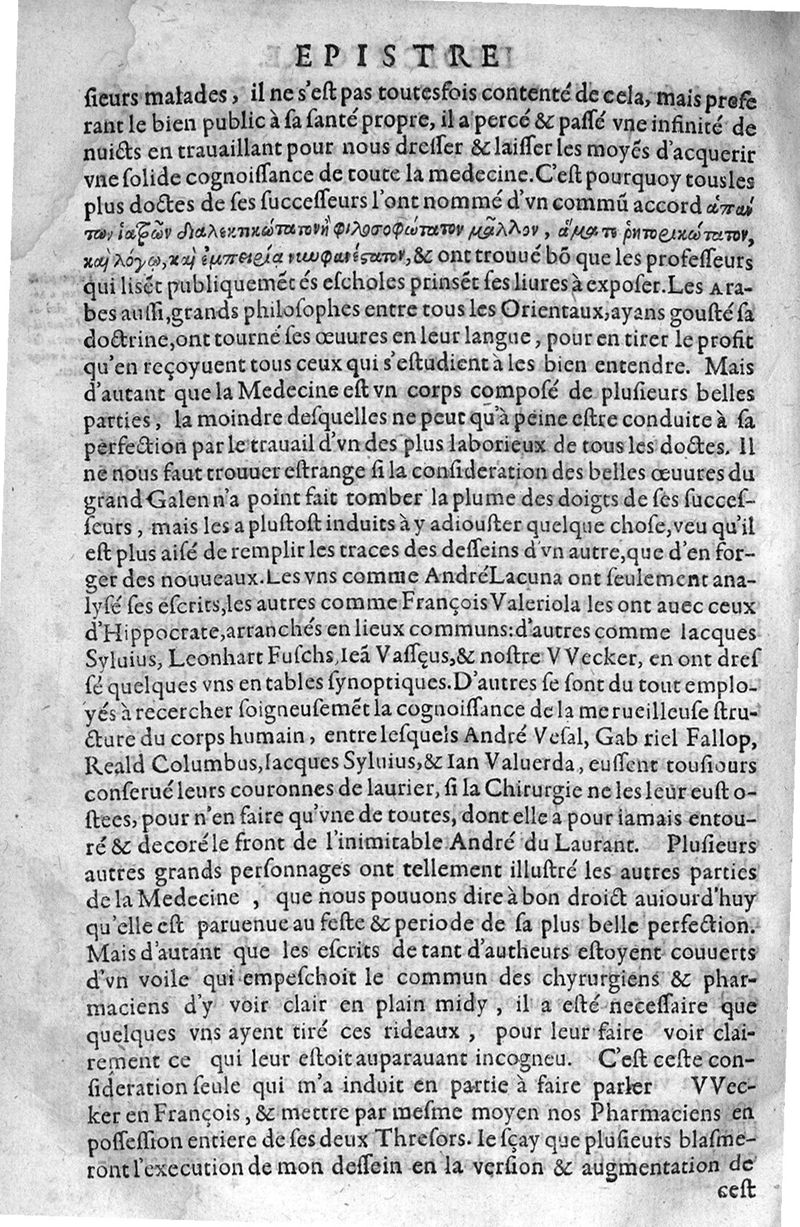 EPISTRE
ſieurs malades, il ne s'eſt pas toutesfois contenté de cela, mais prefe
rant le bien public à ſa santé propre, il a percé & paſſé vne infinité de
nuicts en trauaillant pour nous dreſſer & laiſſer les moyẽs d'acquerir
vne ſolide cognoiſſance de toute la medecine. C'eſt pourquoy tous les
plus doctes de ſes ſucceſſeurs l'ont nommé d'vn commũ accord ἁπάν
των ἰατρῶν διαλεκτικώτατον ἢ φιλοσοφώτατον μᾶλλον, ἅμα τε ῥητορικώτατον,
καὶ λόγῳ, καὶ ἐμπειρίᾳ, & ont trouué bõ que les profeſſeurs
qui liſẽt publiquemẽt és eſcholes prinsẽt ſes liures à expoſer. Les Ara-
bes auſſi, grands philoſophes entre tous les Orientaux, ayans gouſté ſa
doctrine, ont tourné ſes œuures en leur langue, pour en tirer le profit
qu'en reçoyuent tous ceux qui s'eſtudient à les bien entendre. Mais
d'autant que la Medecine eſt vn corps compoſé de pluſieurs belles
parties, la moindre deſquelles ne peut qu'à peine eſtre conduite à ſa
perfection par le trauail d'vn des plus laborieux de tous les doctes. Il
ne nous faut trouuer eſtrange ſi la conſideration des belles œuures du
grand Galen n'a point fait tomber la plume des doigts de ſes ſucceſ-
ſeurs, mais les a pluſtoſt induits à y adiouſter quelque choſe, veu qu'il
eſt plus aiſé de remplir les traces des deſſeins d'vn autre, que d'en for-
ger des nouueaux. Les vns comme André Lacuna ont ſeulement ana-
lyſé ſes eſcrits, les autres comme François Valeriola les ont auec ceux
d'Hippocrate, arranchés en lieux communs: d'autres comme Iacques
Syluius, Leonhart Fuſchs, Ieã Vaſſęus, & noſtre VVecker, en ont dreſ
ſé quelques vns en tables ſynoptiques. D'autres ſe ſont du tout emplo-
yés à recercher ſoigneuſemẽt la cognoiſſance de la merueilleuſe ſtru-
cture du corps humain, entre leſquels André Veſal, Gabriel Fallop,
Reald Columbus, Iacques Syluius, & Ian Valuerda, euſſent touſiours
conſerué leurs couronnes de laurier, ſi la Chirurgie ne les leur euſt o-
ſtees, pour n'en faire qu'vne de toutes, dont elle a pour iamais entou-
ré & decoré le front de l'inimitable André du Laurant. Pluſieurs
autres grands perſonnages ont tellement illuſtré les autres parties
de la Medecine, que nous pouuons dire à bon droict auiourd'huy
qu'elle eſt paruenue au feſte & periode de ſa plus belle perfection.
Mais d'autant que les eſcrits de tant d'autheurs eſtoyent couuerts
d'vn voile qui empeſchoit le commun des chyrurgiens & phar-
maciens d'y voir clair en plain midy, il a eſté neceſſaire que
quelques vns ayent tiré ces rideaux, pour leur faire voir clai-
rement ce qui leur eſtoit auparauant incogneu. C'eſt ceſte con-
ſideration ſeule qui m'a induit en partie à faire parler VVec-
ker en François, & mettre par meſme moyen nos Pharmaciens en
poſſeſſion entiere de ſes deux Threſors. Ie ſçay que pluſieurs blaſme-
ront l'execution de mon deſſein en la verſion & augmentation de
ceſt